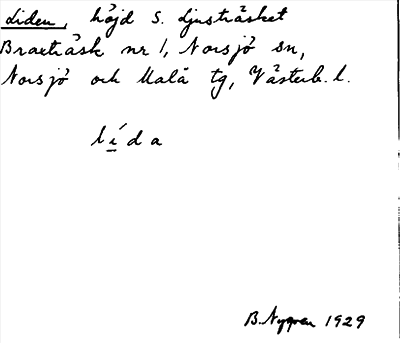 Liden, höjd S. Ljusträsket
Braxträsk nr 1, Norsjö sn,
Norsjö och Malå tg, Västerb. l.
lı̱́da
B. Nygren 1929